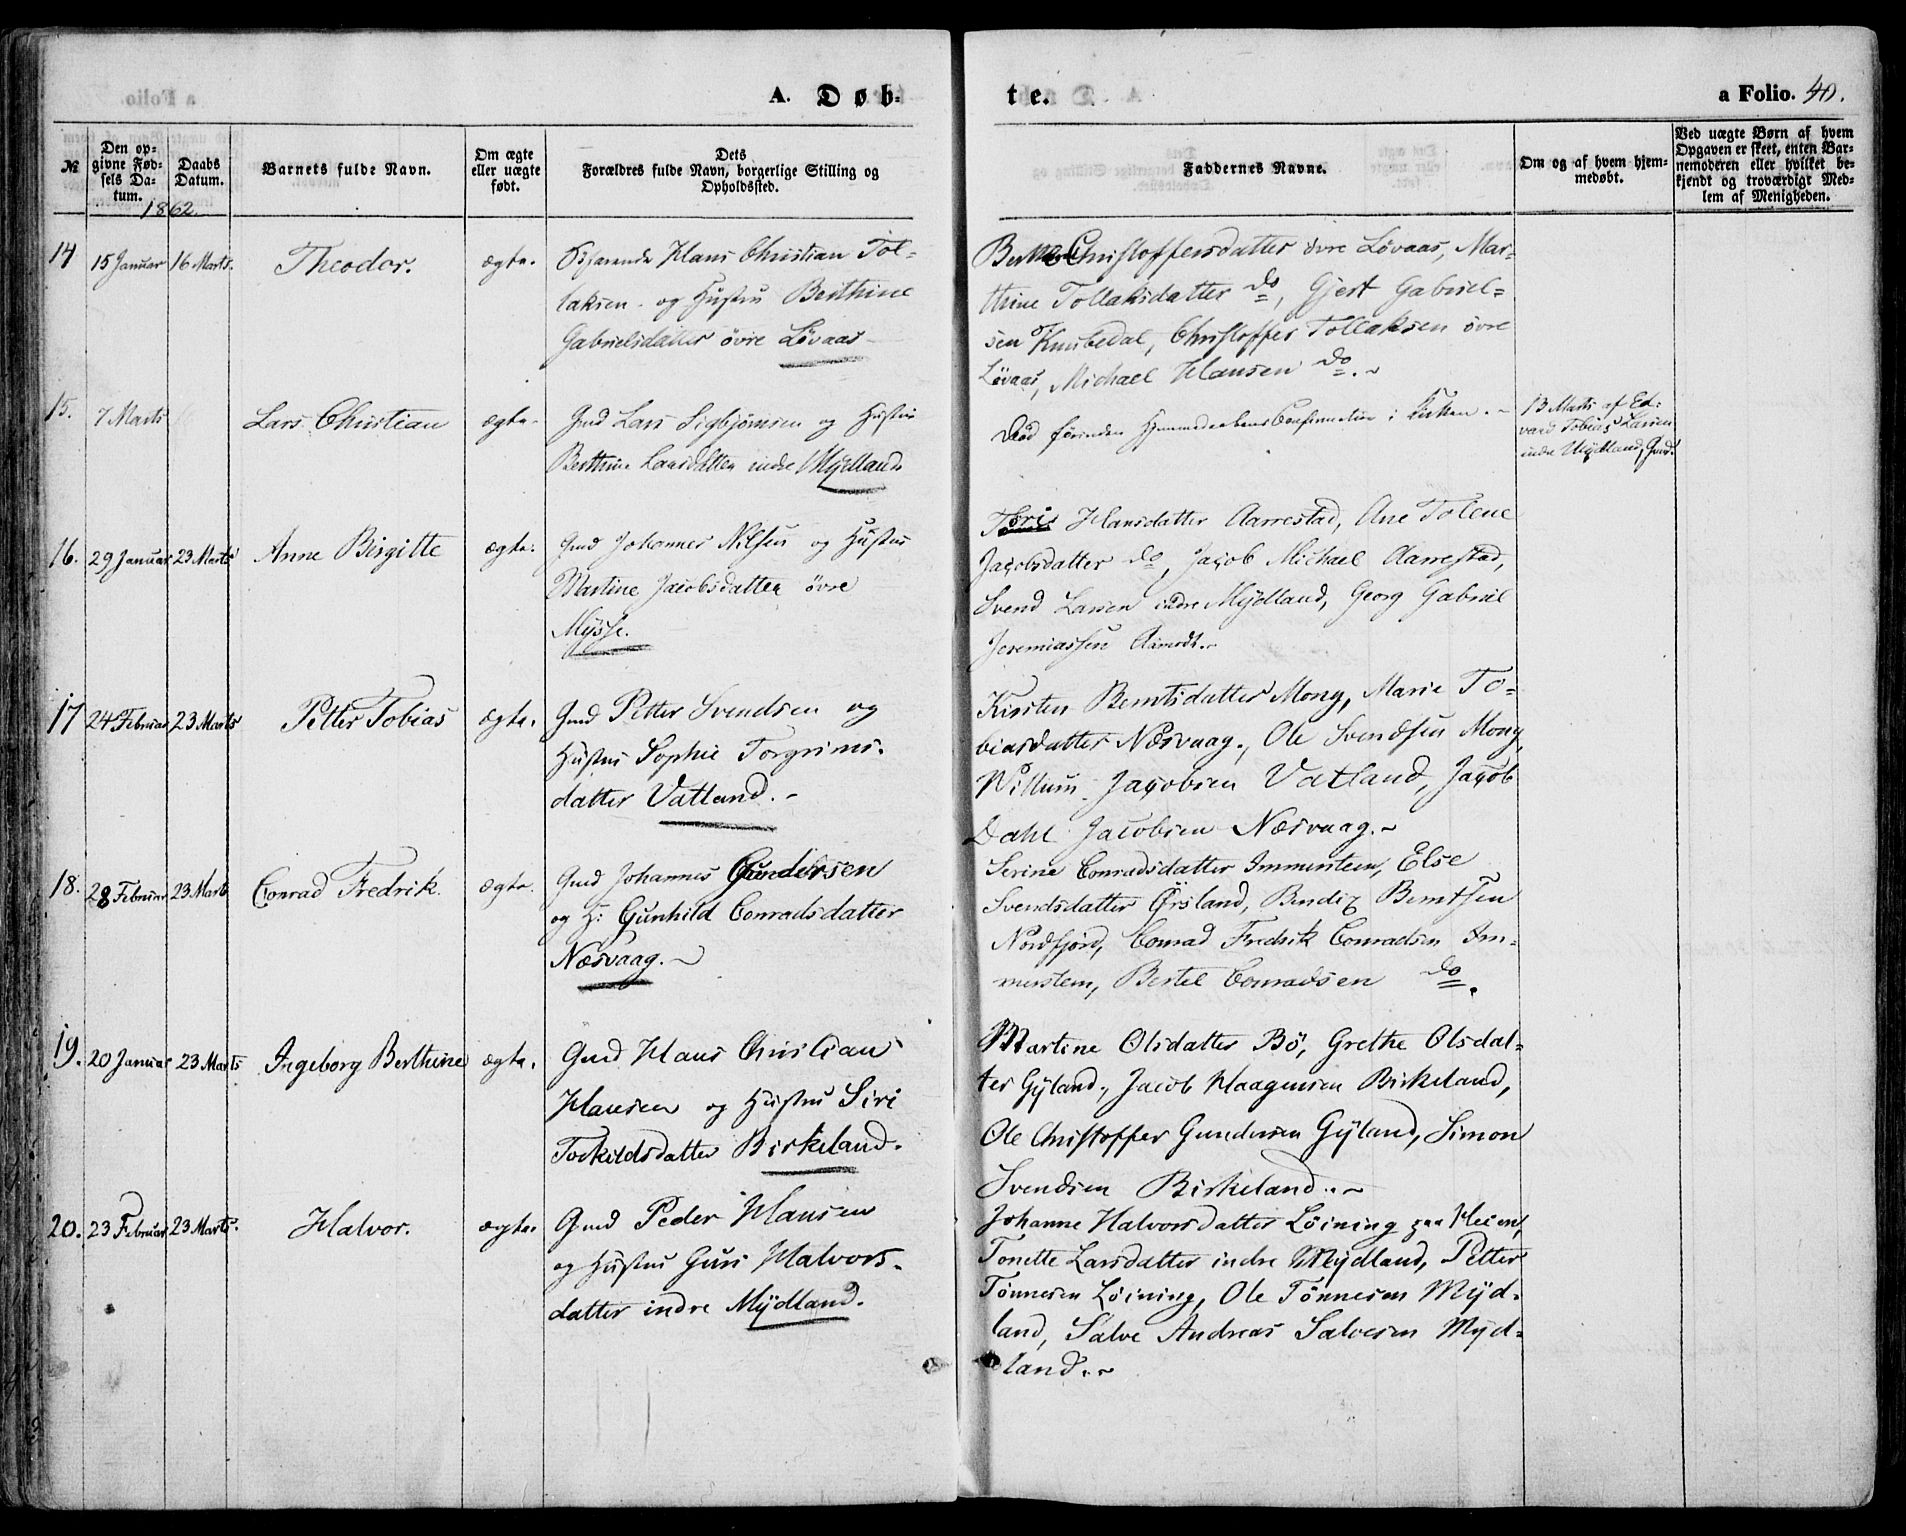 A. Døb-
te.
a Folio. 40.
№
Den op-
givne Fød-
sels Da-
tum.
Daabs
Datum.
Barnets fulde Navn.
Om ægte
eller uægte
født.
Dets
Forældres fulde Navn, borgerlige Stilling og
Opholdsted.
Faddernes Navne.
Om og af hvem hjem-
medøbt.
Ved uægte Børn af hvem
Opgaven er skeet, enten Bar-
nemoderen eller hvilket be-
kjendt og troværdigt Med-
lem af Menigheden.
1862.
14
15 Januar
16 Marts.
Theodor.
ægte.
Hans Christian Tol-
laksen og Hustru Berthine
Gabrielsdatter øvre Løvaas
Christoffersdatter øvre Løvaas, Mar-
thine Tollaksdatter do, Gjert Gabriel-
sen Knubedal, Christoffer Tollaksen øvre
Løvaas, Michael Hansen do.
15.
7 Marts
Lars Christian
ægte.
Gmd Lars Sigbjørnsen og Hustru
Berthine Larsdatter indre Mydland
Død førinden Hjemmedaabens Confirmation i Kirken.
13 Marts af Ed-
vard Tobias Larsen
indre Mydland, Gmd.
16.
29 Januar
23 Marts
Anne Birgitte
ægte.
Gmd Johannes Nilsen og Hustru
Martine Jacobsdatter øvre
Mysse.
Tori Hansdatter Aarrestad, Ane Tolene
Jacobsdatter do, Jacob Michael Aarrestad,
Svend Larsen indre Mydland, Georg Gabriel
Jeremiassen Aamodt.
17
24 Februar
23 Marts
Petter Tobias
ægte.
Gmd Petter Svendsen og
Hustru Sophie Torgrims-
datter Vatland.
Kirsten Berntsdatter Mong, Marie To-
biasdatter Næsvaag, Ole Svendsen Mong,
Willum Jacobsen Vatland, Jacob
Dahl Jacobsen Næsvaag.
18.
28 Februar
23 Marts
Conrad Fredrik.
ægte.
Gmd Johannes Gundersen
og H: Gunhild Conradsdatter
Næsvaag.
Serine Conradsdatter Immerstein, Else
Svendsdatter Ørsland, Bendix Berntsen
Nordfjord, Conrad Fredrik Conradsen Im-
merstein, Bertel Conradsen do.
19.
20 Januar
23 Marts
Ingeborg Berthine
ægte.
Gmd Hans Christian
Hansen og Hustru Siri
Torkildsdatter Birkeland.
Martine Olsdatter Bø, Grethe Olsdat-
ter Gyland, Jacob Haagensen Birkeland,
Ole Christoffer Gundersen Gyland, Simon
Svendsen Birkeland.
20.
23 Februar
23 Marts.
Halvor.
ægte
Gmd Peder Hansen
og Hustru Guri Halvors-
datter indre Mydland.
Johanne Halvorsdatter Løining paa Heien,
Tonette Larsdatter indre Mydland, Petter
Tønnesen Løining, Ole Tønnesen Myd-
land, Salve Andreas Salvesen Myd-
land.